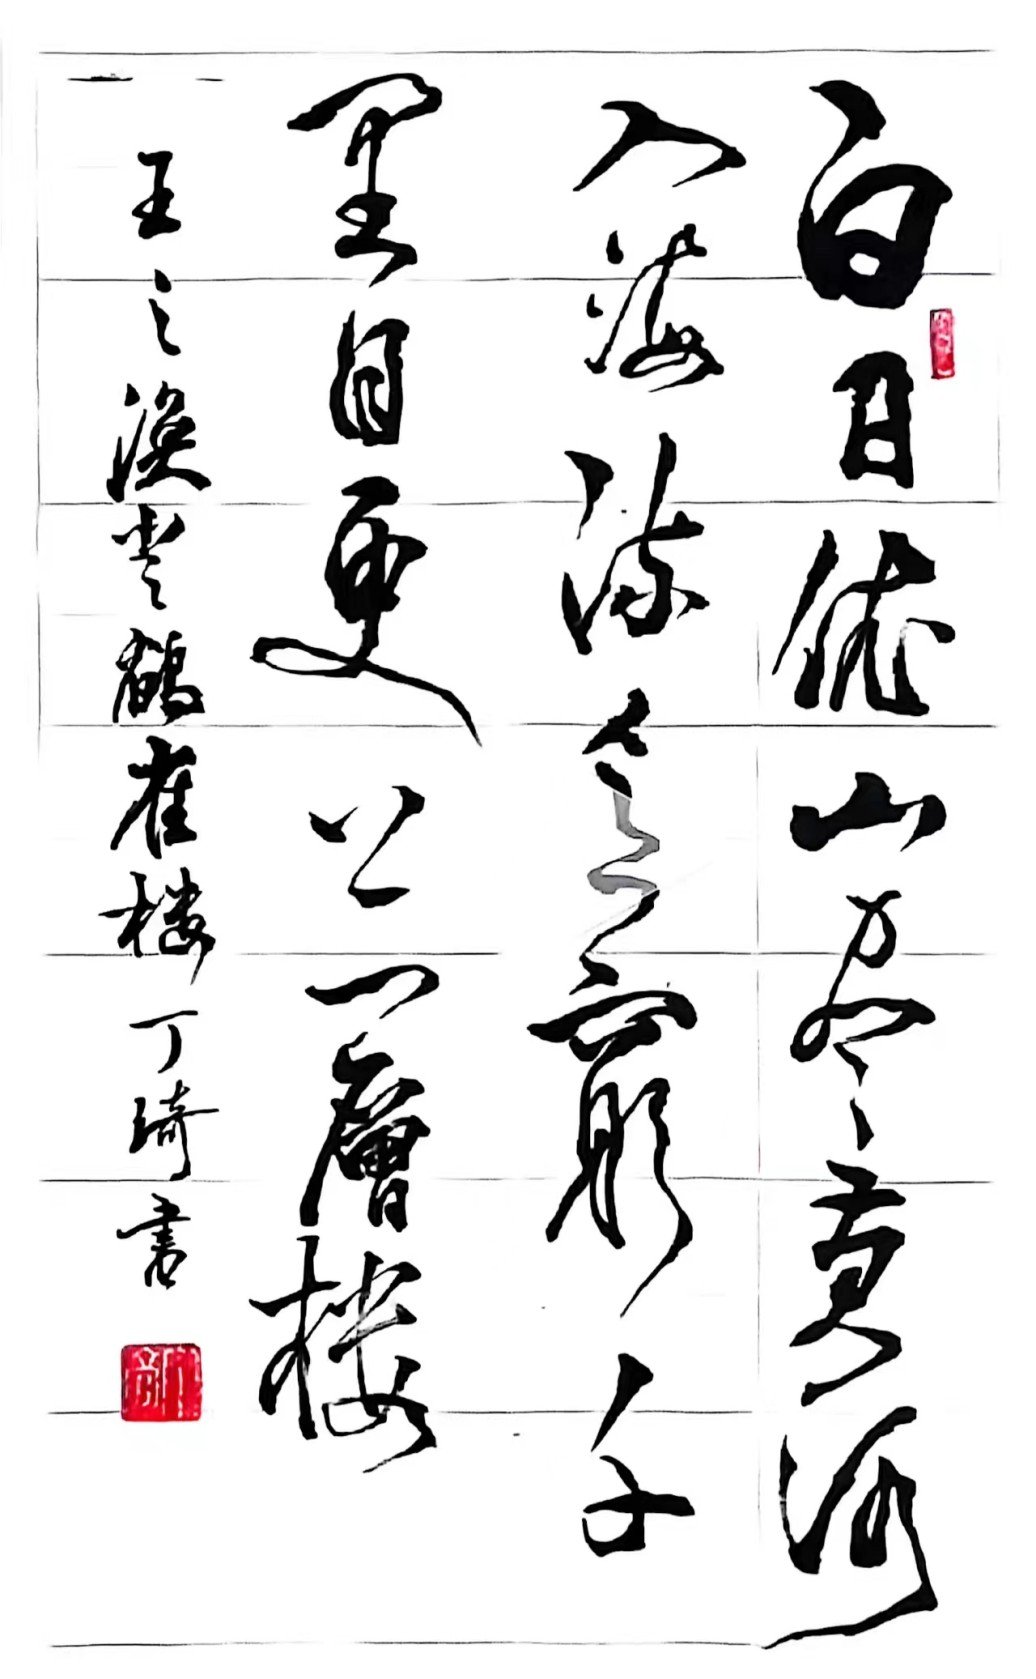 白日依山尽黄河
入海流欲窮千
里目更上一層楼
王之渙登鶴雀楼丁琦書